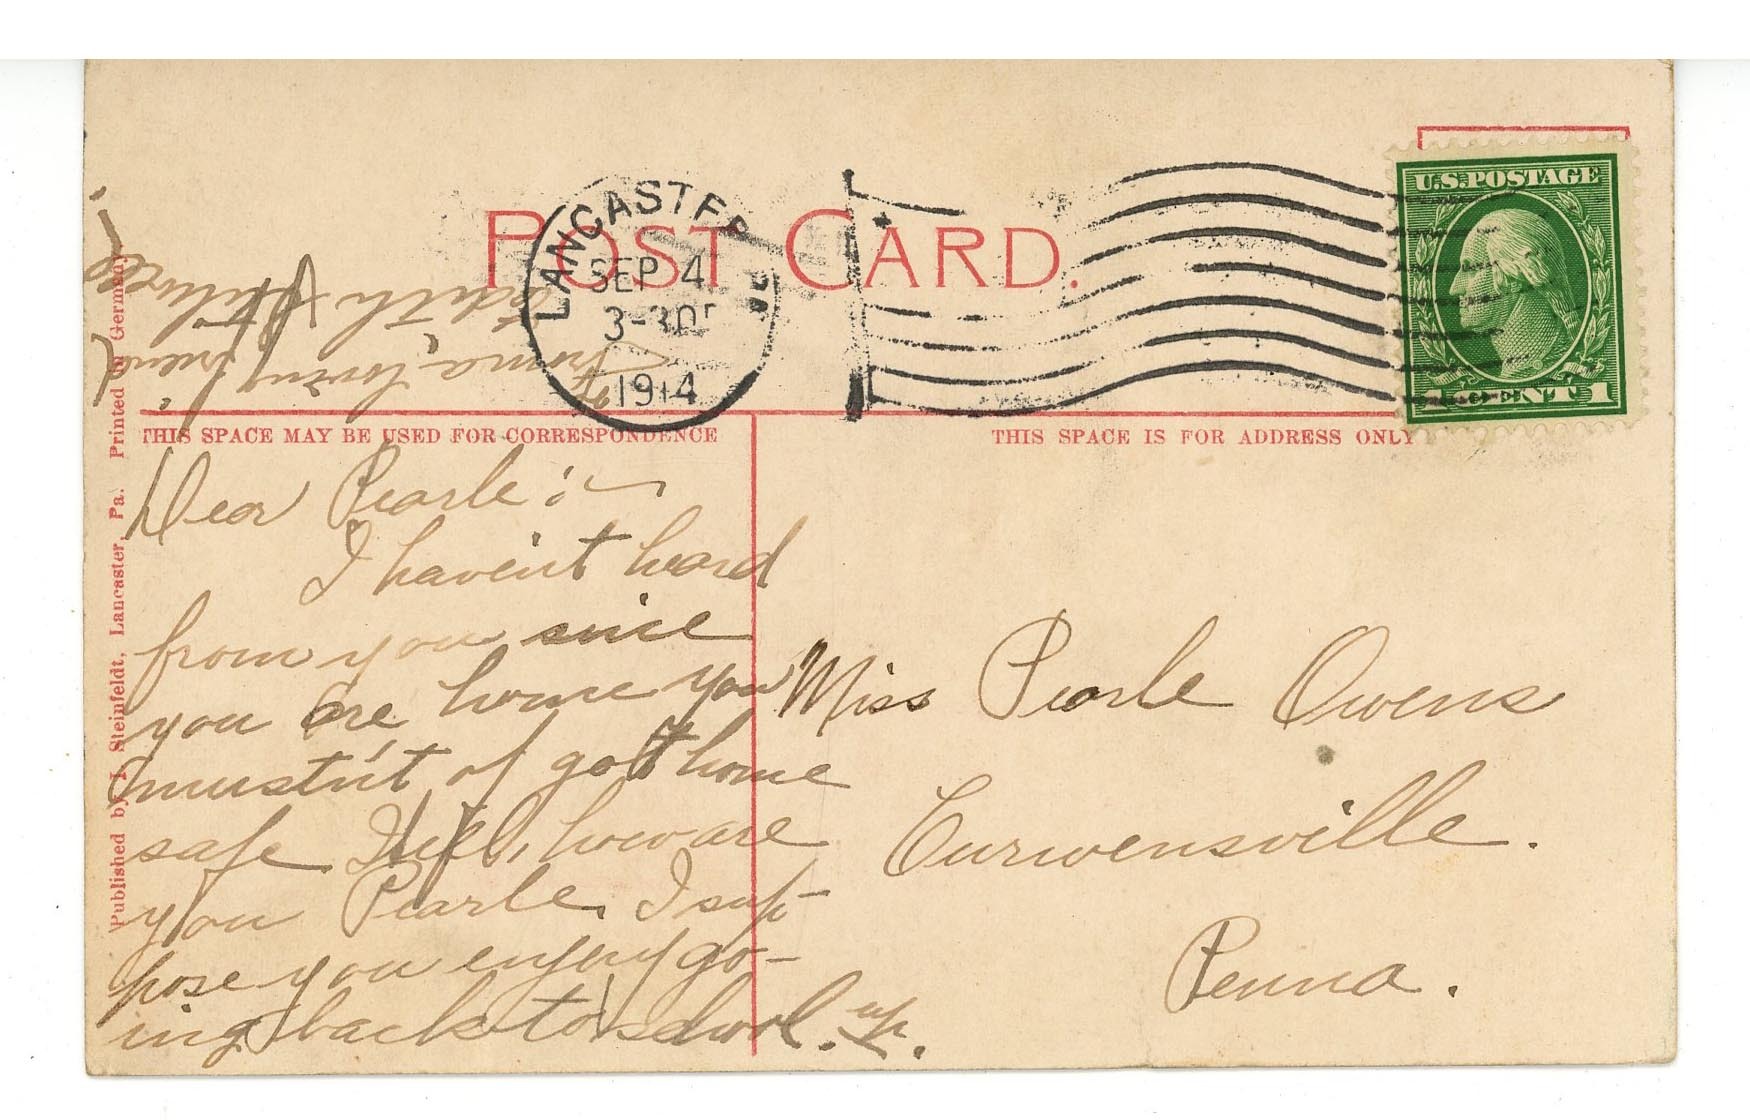 POST CARD.
LANCASTER
SEP 4
3-30P
1914
U.S. POSTAGE
CENT 1
THIS SPACE MAY BE USED FOR CORRESPONDENCE
THIS SPACE IS FOR ADDRESS ONLY
Published by I. Steinfeldt, Lancaster, Pa. Printed in Germany
Dear Pearle :~
I haven't heard
from you since
you are home you
mustn't of got home
safe Well, how are
you Pearle. I sup-
pose you enjoy go-
ing back to school. up.
From a loving friend
Edith
Miss Pearle Owens
Curwensville.
Penna.